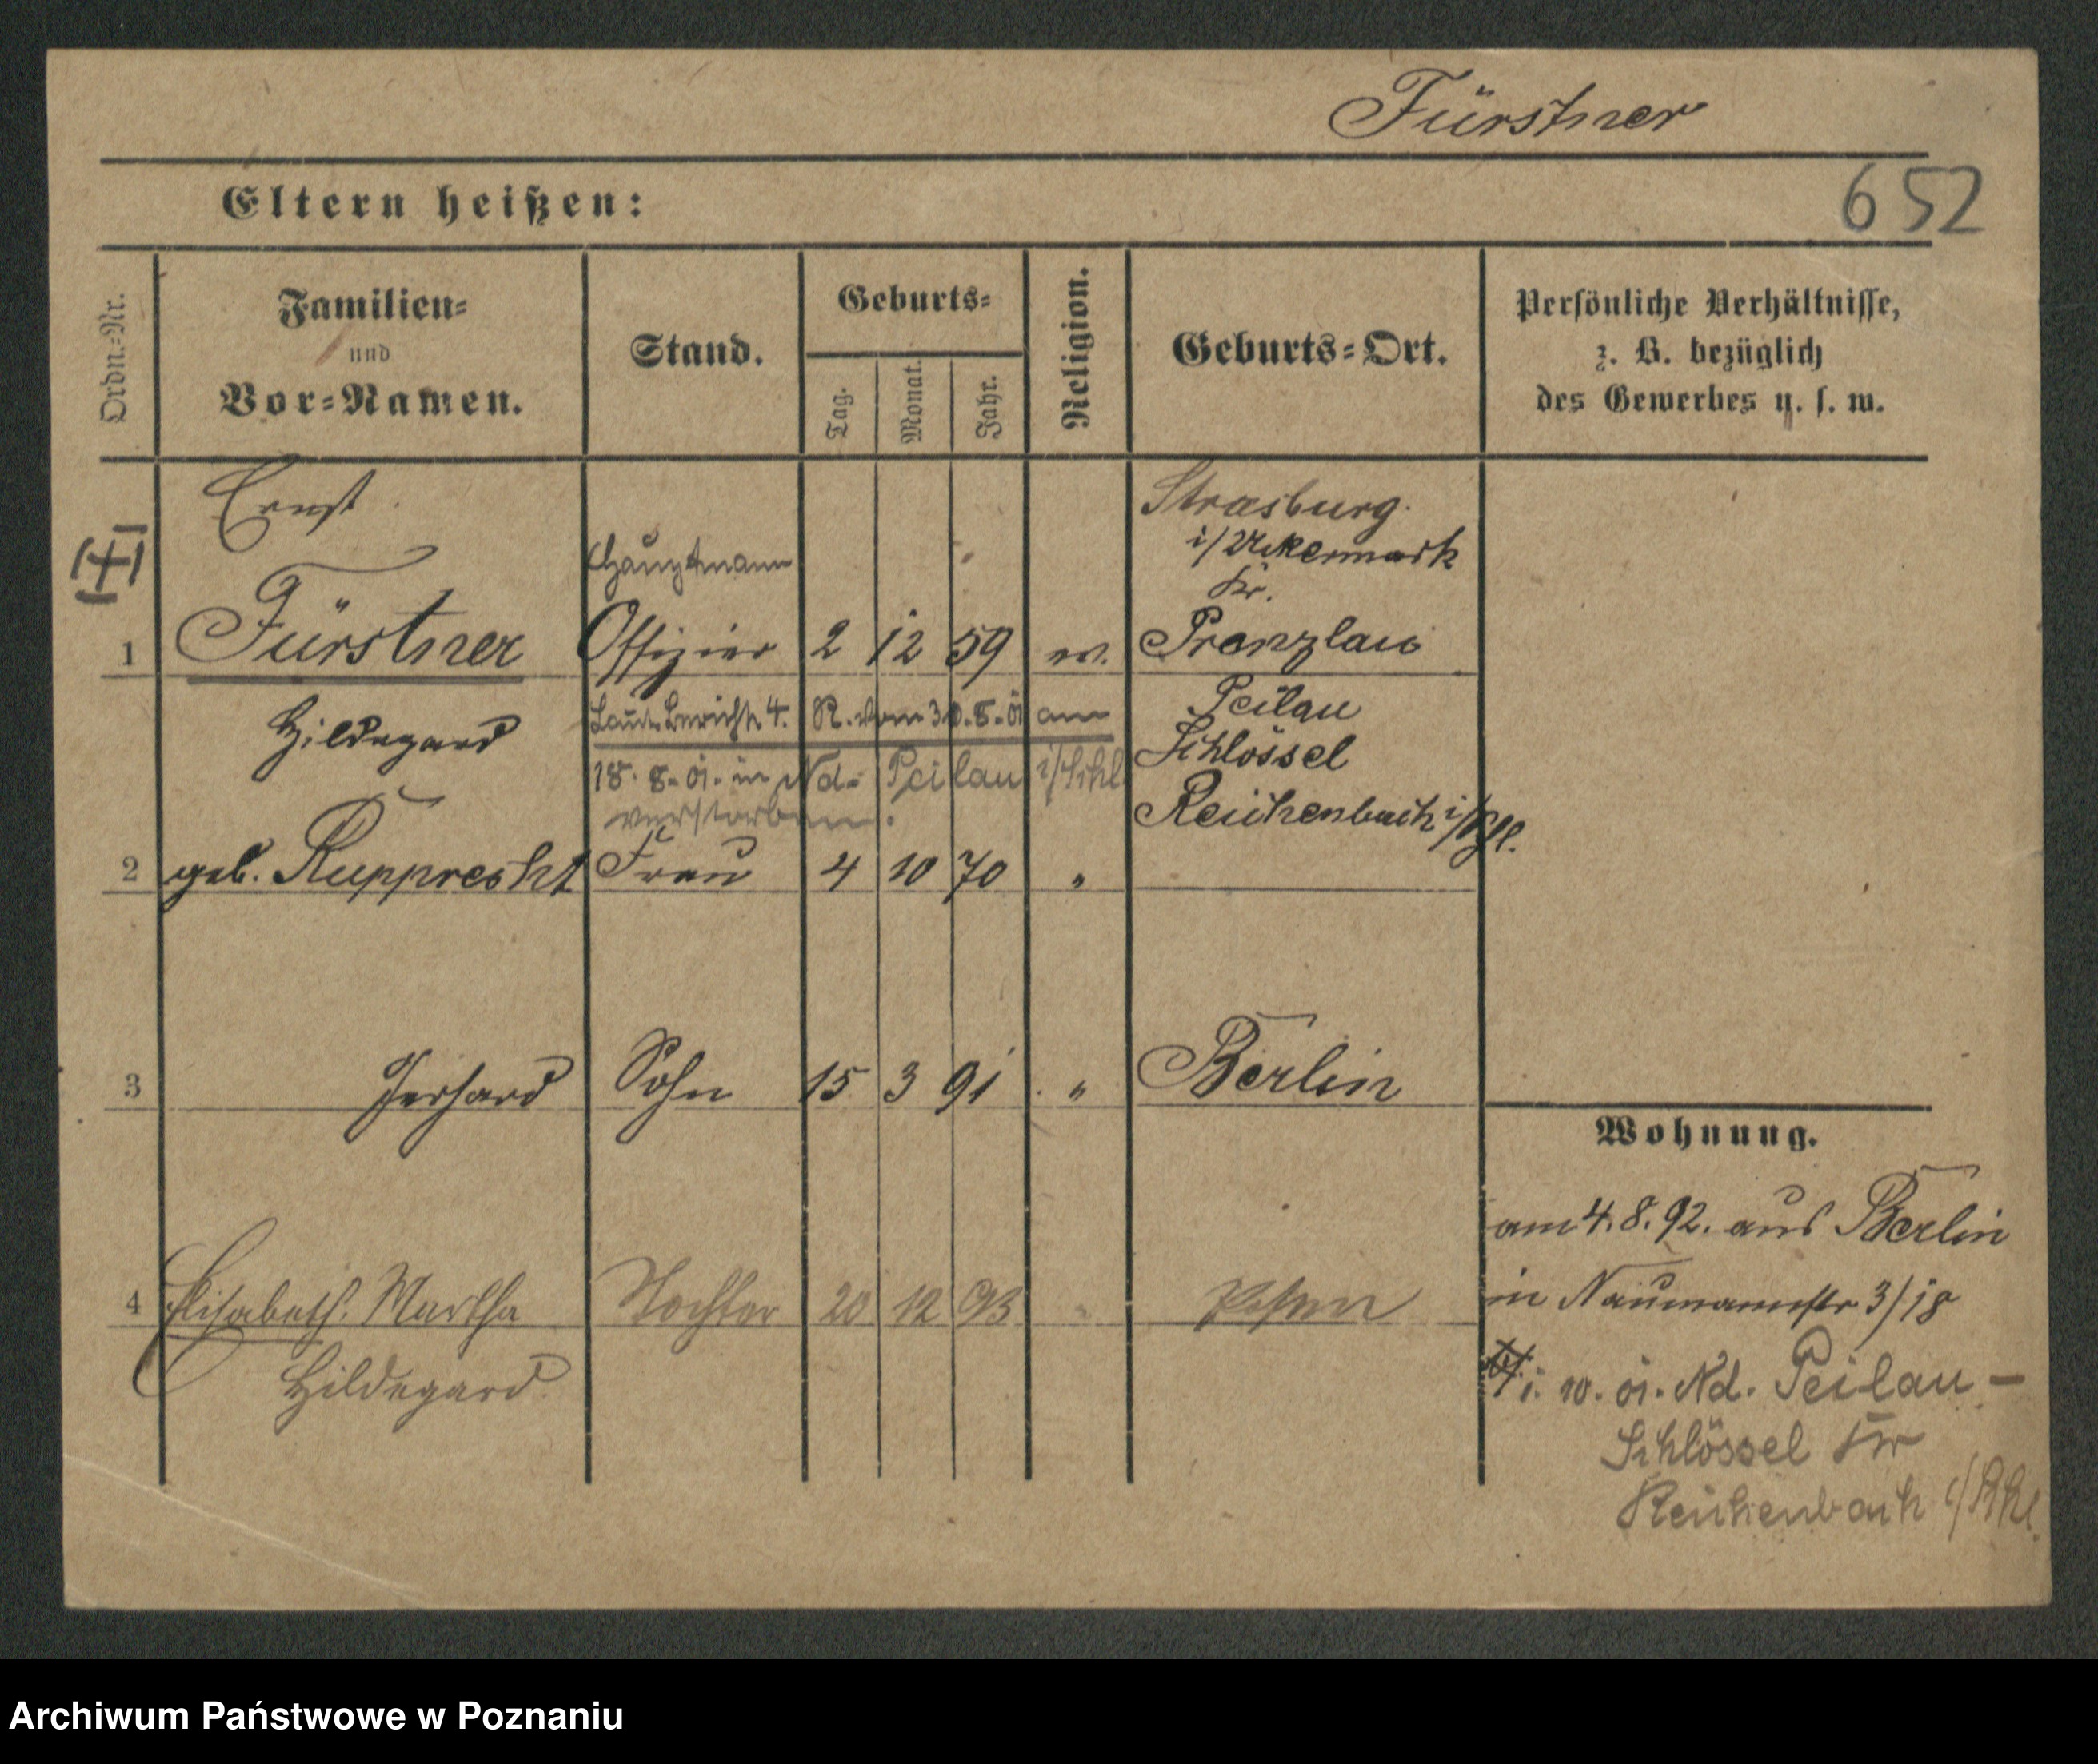 Fürstner
652
Eltern heißen:
Ordn.=Nr.
Familien=
und
Vor=Namen.
Stand.
Geburts=
Tag.
Monat.
Jahr.
Religion.
Geburts=Ort.
Persönliche Verhältnisse,
z. B. bezüglich
des Gewerbes u. s. w.
Ernst
Strasburg
i/Uckermark
Hauptmann
Kr.
1 Fürstner Offizier 2 12 59 ev. Prenzlau
Hildegard
Laut Bericht 4. R. vom 30.8.01 am
18. 8. 01. in Nd. Peilau i/Schl
verstorben.
Peilau
Schlössel
Reichenbach i/Schl.
2 geb. Rupprecht Frau 4 10 70 "
3 Gerhard Sohn 15 3 91 " Berlin
4 Elisabeth Martha Tochter 20 12 93 " Posen
Hildegard
Wohnung.
am 4. 8. 92. aus Berlin
in Naumannstr 3/18
1. 10. 01. Nd. Peilau –
Schlössel Kr
Reichenbach i/Schl.
Archiwum Państwowe w Poznaniu